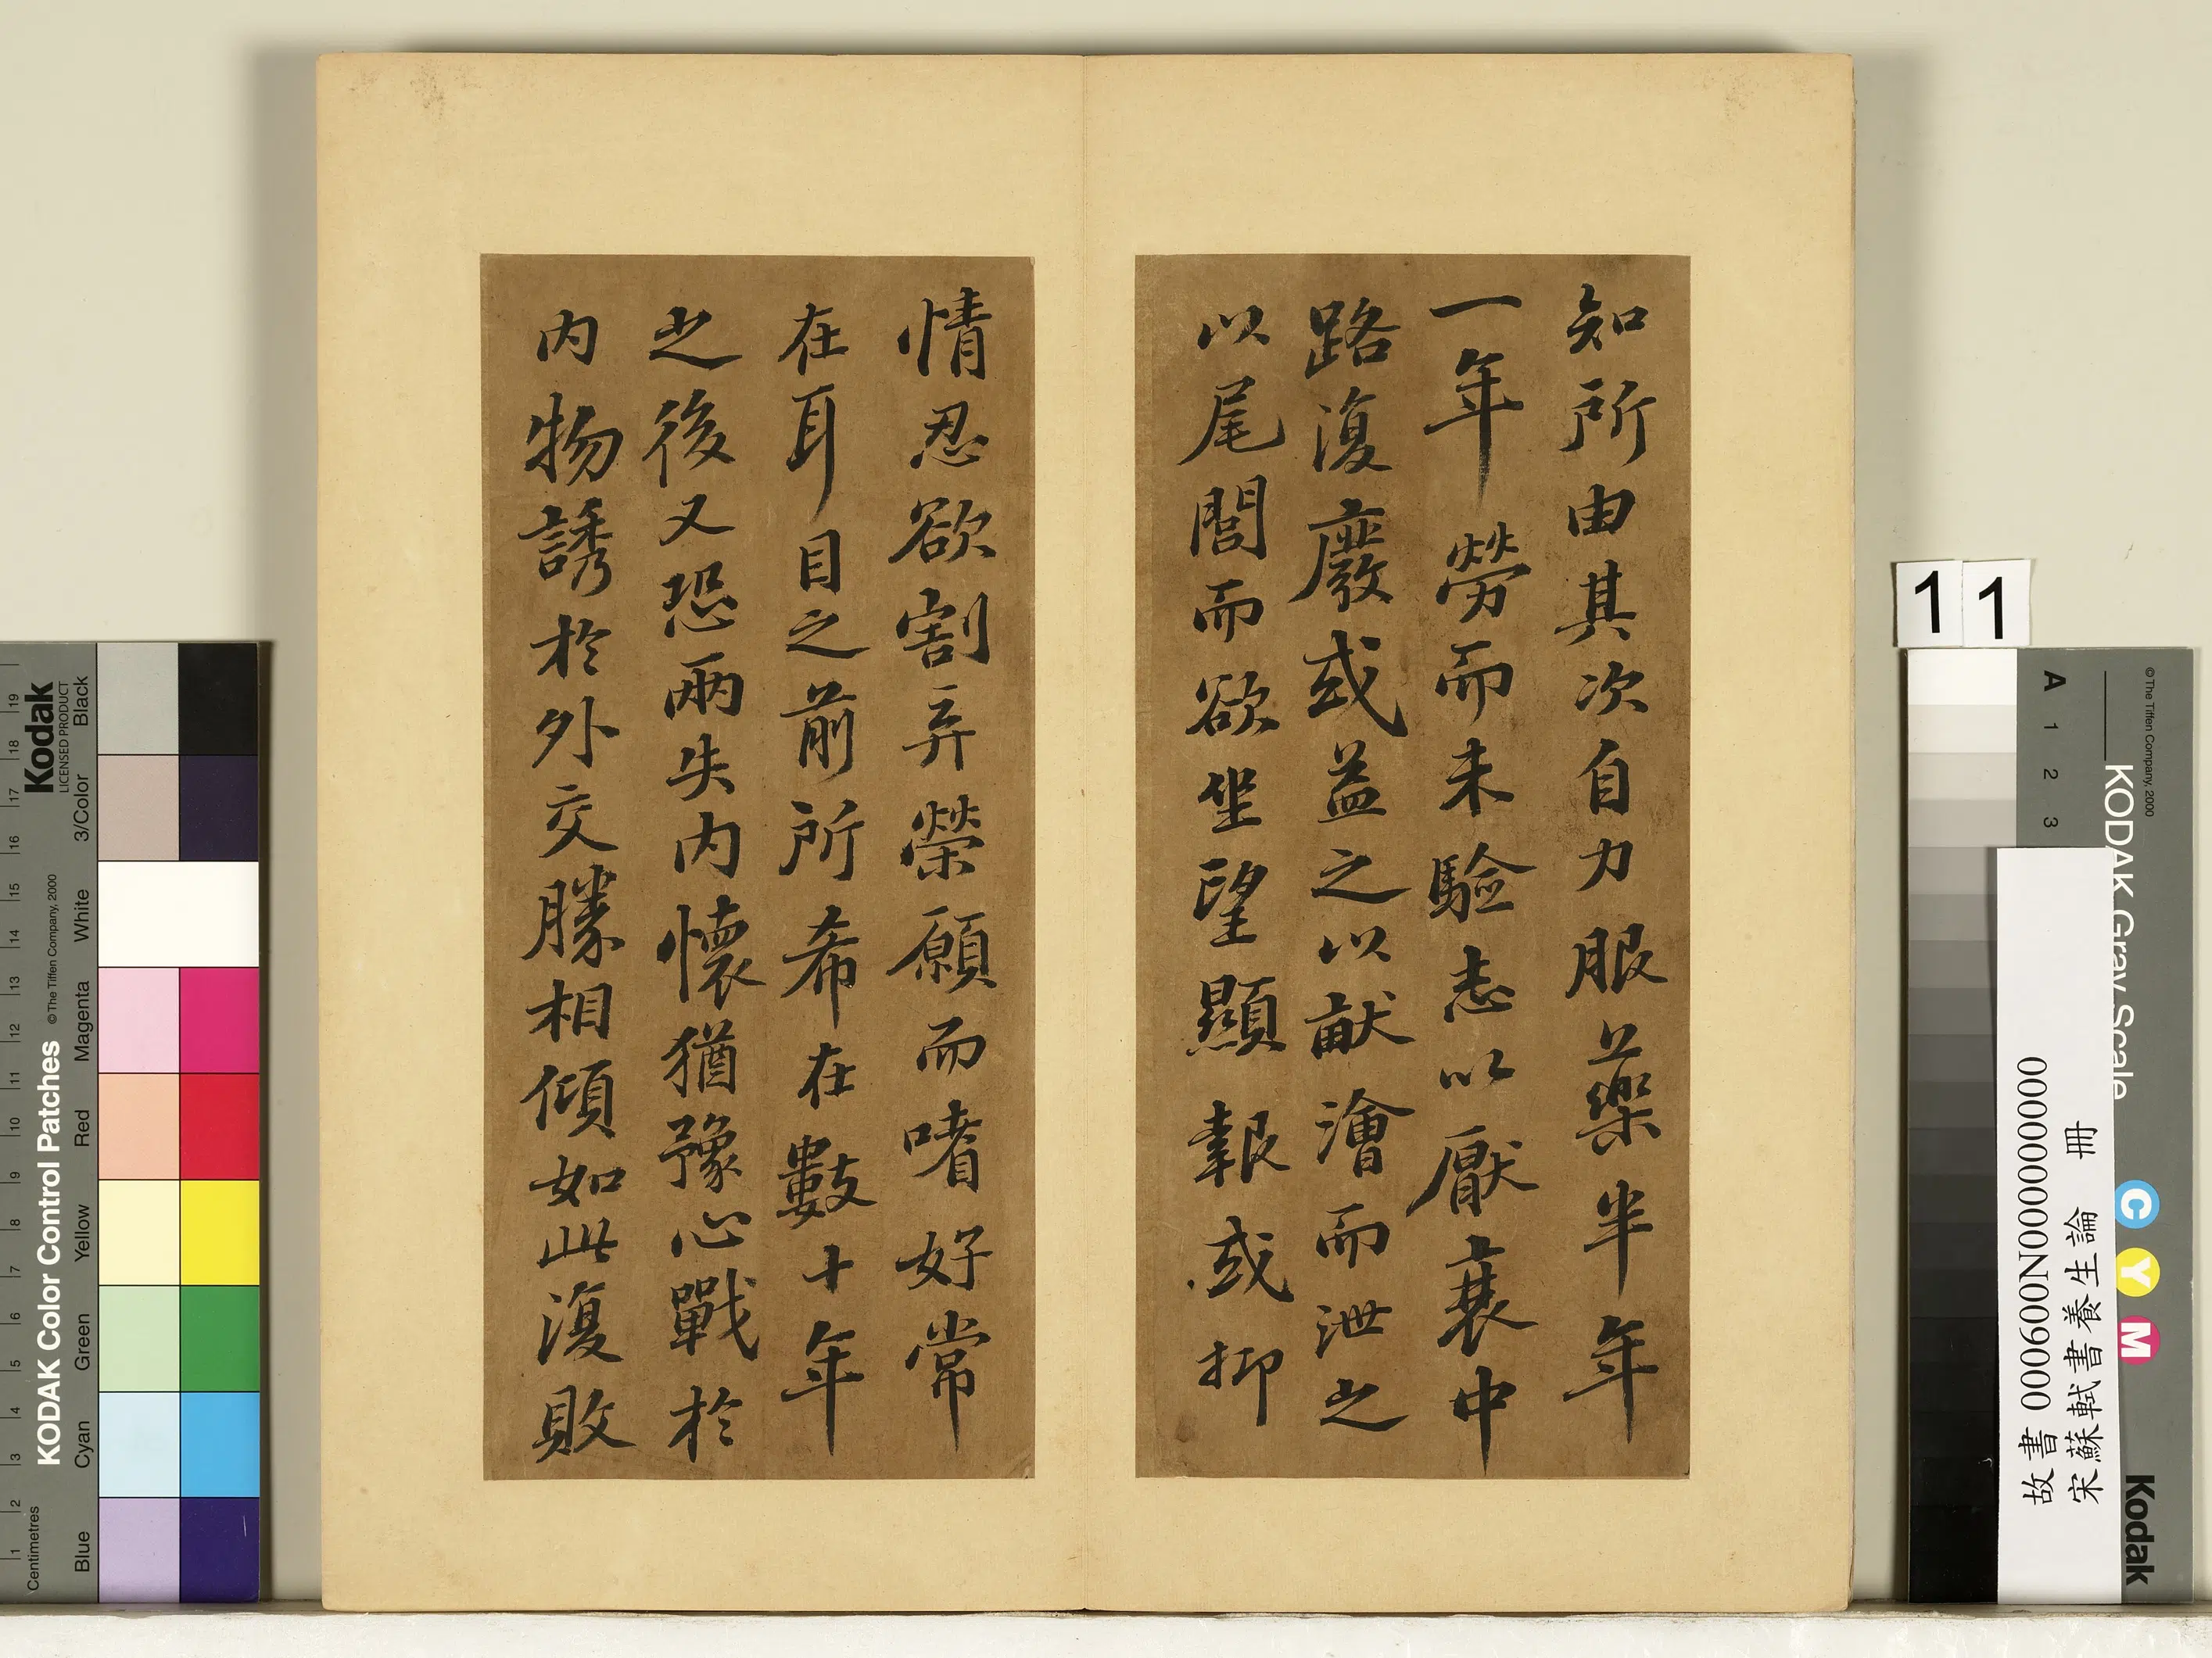 知所由其次自力服藥半年
一年勞而未驗志以厭衰中
路復廢或益之以畎澮而泄之
以尾閭而欲坐望顯報或抑
情忍欲割弃榮願而嗜好常
在耳目之前所希在數十年
之後又恐兩失內懷猶豫心戰於
內物誘於外交賒相傾如此復敗
11
故書 000600N000000000
宋蘇軾書養生論 冊
KODAK Color Control Patches
©The Tiffen Company, 2000
Kodak
LICENSED PRODUCT
Centimetres
1 2 3 4 5 6 7 8 9 10 11 12 13 14 15 16 17 18 19
Blue Cyan Green Yellow Red Magenta White 3/Color Black
KODAK Gray Scale
©The Tiffen Company, 2000
A 1 2 3
C Y M
Kodak